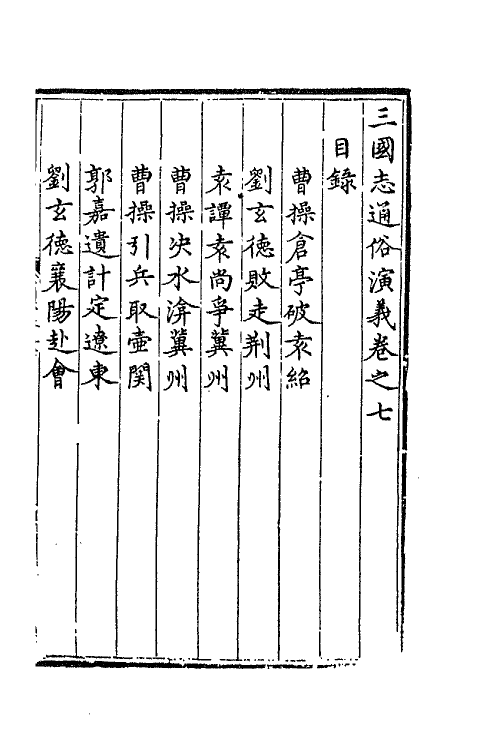 三國志通俗演義卷之七
目錄
曹操倉亭破袁紹
劉玄德敗走荆州
袁譚袁尚爭冀州
曹操决水渰冀州
曹操引兵取壺関
郭嘉遺計定遼東
劉玄德襄陽赴會